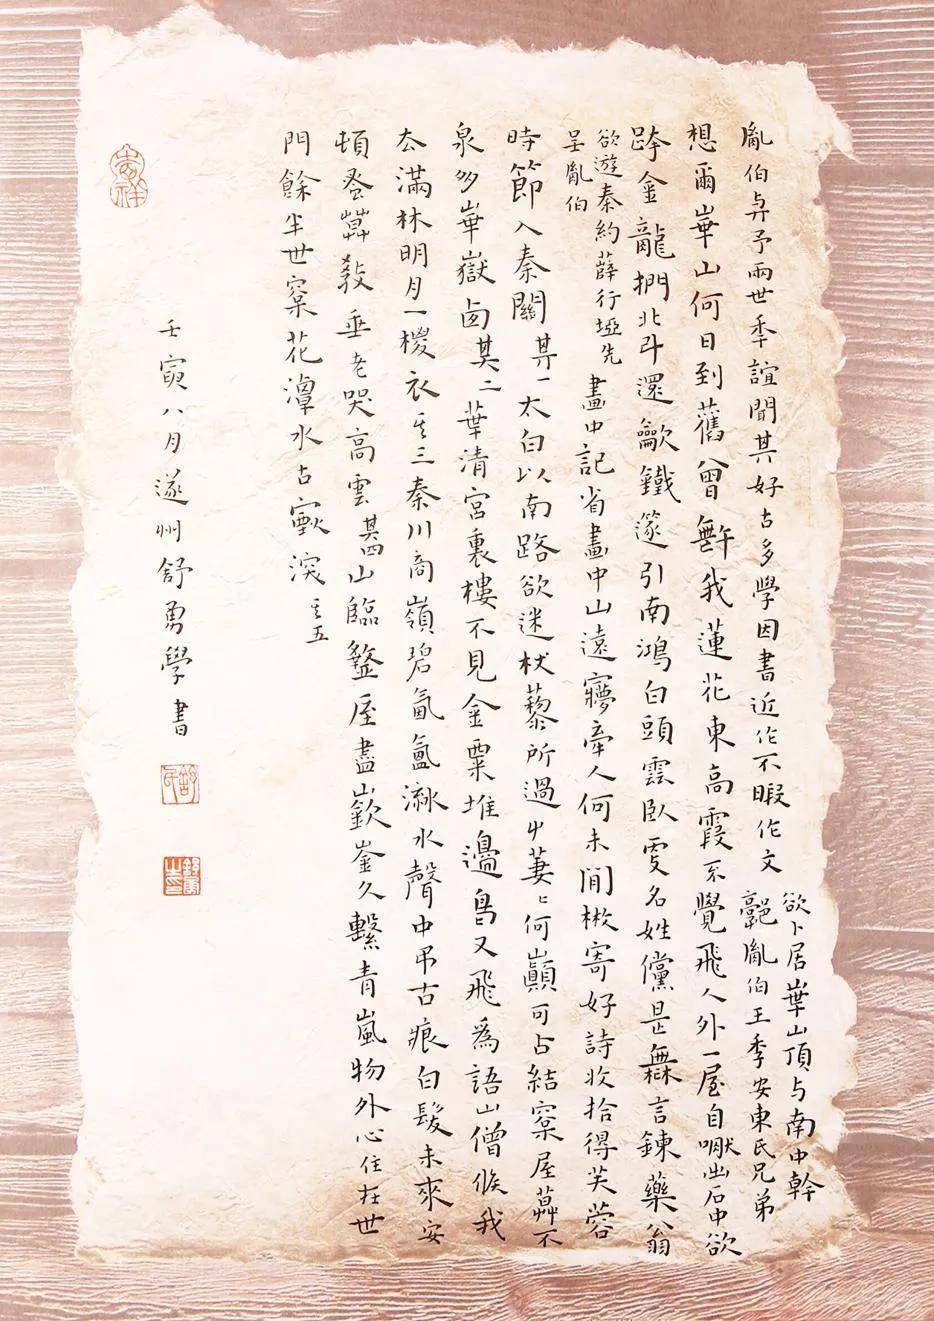 胤伯与予兩世年誼聞其好古多學因書近作不暇作文
欲卜居華山頂与南中幹
胤伯王季安東氏兄弟
想爾華山何日到舊曾無許我蓮花東高霞不覺飛人外一屋自嘯出石中欲
跨金龍捫北斗還歗鐵篴引南鴻白頭雲臥変名姓儻是無言鍊藥翁
欲遊秦約薛行塢先
呈胤伯
畫中記省畫中山遠夢牽人何未閒楸寄好詩收拾得芙蓉
時節入秦關其一太白以南路欲迷杖藜所過屮萋〻何巔可占結窠屋茆不
泉多華嶽卤其二華清宮裏樓不見金粟堆邊鳥又飛為語山僧候我
厺滿林明月一稜衣其三秦川商嶺碧氤氳淋水聲中弔古痕白髮未來安
頓蚤教垂老哭高雲其四山臨盩厔盡嶔崟久繫青嵐物外心住在世
門餘半世窠花潭水古歡深其五
壬寅八月遂州舒勇學書
舒氏